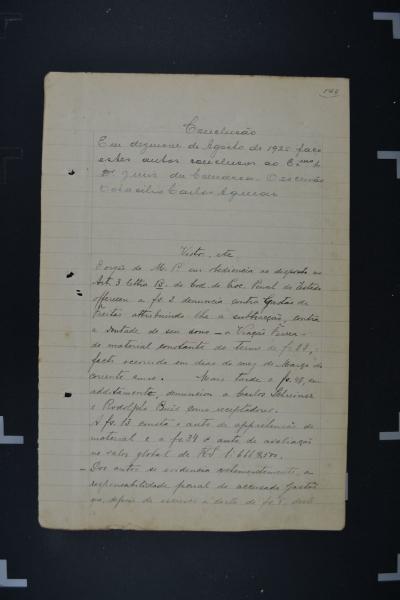 Conclusão
Em dezenove de Agosto de 1925 faço
estes autos conclusos ao Exmo
Dr Juiz da Comarca. O escrivão
Carlos
Visto, etc
O orgão do M. P. em obediencia ao disposto no
Art. 3 letra do Cod. de Proc. Penal do Estado
offereceu a fs. 2 denuncia contra Gastão de
Freitas attribuindo-lhe a subtracção, contra
a vontade de seu dono - a Viação Ferrea -
de material constante do termo de fs
facto ocorrido em dias do mez de Março do
corrente anno. Mais tarde a fs. em
additamento, denunciou a Carlos Schreiner
e Rodolpho como receptadores.
A fs. 13 consta o auto de apprehensão do
material e a fs. 34 o auto de avaliação
no valor global de
- Dos autos se evidencia a
responsabilidade penal do accusado Gastão
que, depois de escrever a carta de fs.